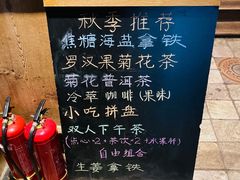 秋季推荐
焦糖海盐拿铁
罗汉果菊花茶
菊花普洱茶
冷萃咖啡(果味)
小吃拼盘
双人下午茶
(点心×2+茶饮×2+水果杯)
自由组合
生姜拿铁